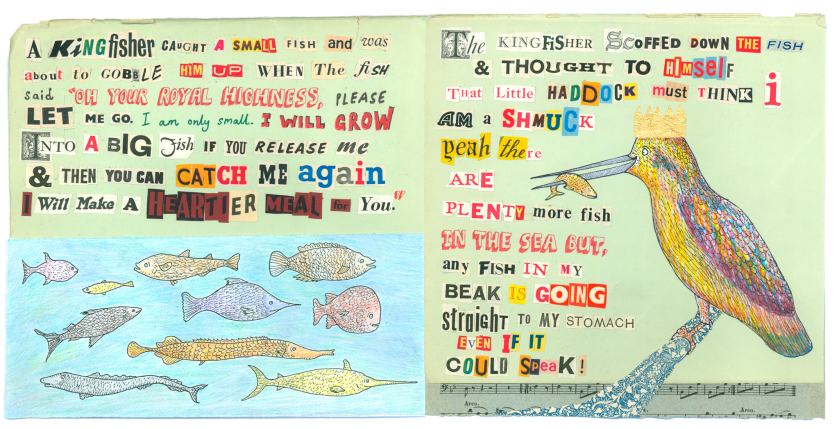 A KiNGfisher CAUGHT A SMALL FISH and was
about to GOBBLE HIM UP WHEN The fiSH
said "OH YOUR ROYAL HIGHNESS, PLEASE
LET ME GO. I am only small. I WILL GROW
INTO A BIG Fish IF YOU RELEASE me
& THEN YOU CAN CATCH ME again
I Will Make A HEARTIER MEAL for You."
The KINGFISHER SCOFFED DOWN THE FISH
& THOUGHT TO HImSelF
THat Little HADDOCK must THINK i
AM a SHMUCK
yeah there
ARE
PLENTY more fish
IN THE SEA BUT,
any FISH IN MY
BEAK IS GOING
straight TO MY STOMACH
EVEN IF IT
COULD SpeaK!
Arco.
Arco.